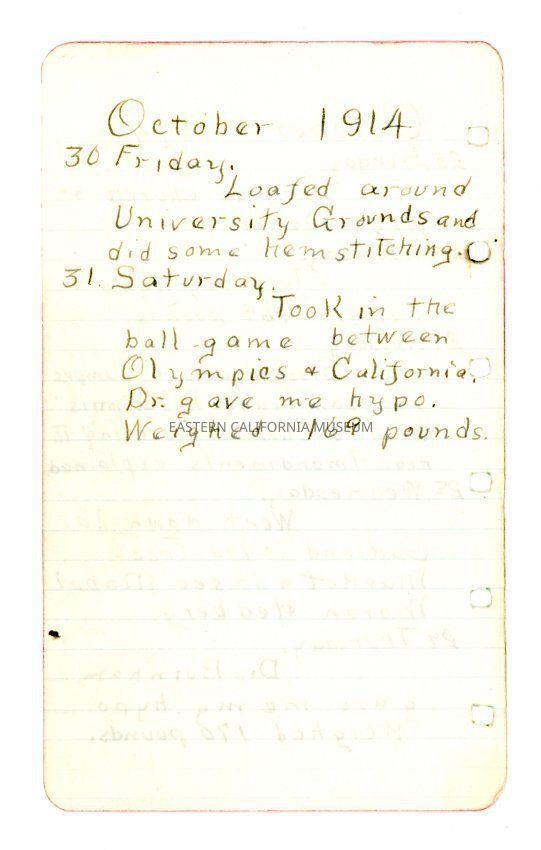 October 1914
30 Friday.
Loafed around
University Grounds and
did some hemstitching.
31. Saturday.
Took in the
ball game between
Olympics & California.
Dr. gave me hypo.
Weighed 169 pounds.
EASTERN CALIFORNIA MUSEUM